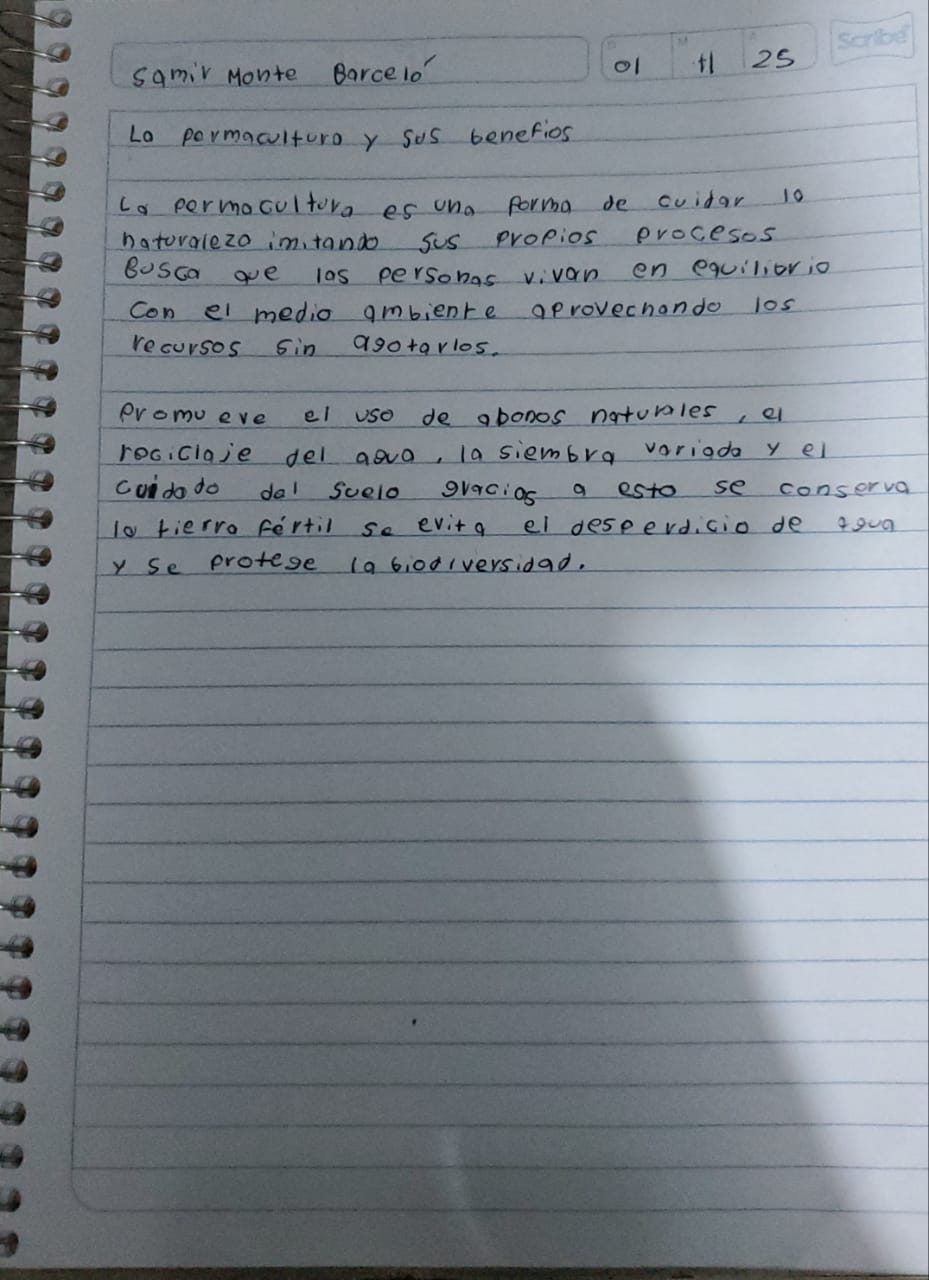 Scribe
Samir Monte Barceló
01 11 25
La permacultura y sus benefios
La permacultura es una forma de cuidar la
naturaleza imitando sus propios procesos
Busca que las personas vivan en equiliorio
con el medio ambiente aprovechando los
recursos sin agotarlos.
Promueve el uso de abonos naturales, el
reciclaje del agua, la siembra variada y el
cuidado del suelo gracias a esto se conserva
la tierra fértil se evita el desperdicio de agua
y se protege la biodiversidad.